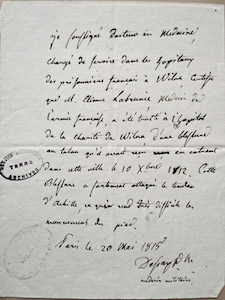 je soussigné Docteur en Médecine,
chargé du service dans les hôpitaux
des prisonniers français à Wilna Certifie
que M. Etienne Labrunie Médecin de
l'armée française, a été traité à l'hôpital
de la charité de Wilna d'une blessure
au talon qu'il avait reçu en entrant
dans cette ville le 10 Xbre 1812. Cette
Blessure a fortement attaqué le tendon
d'Achile, ce qui rend très difficile les
mouvemens du pied.
Paris le 20 Mai 1815
médecin militaire
TERRE
ARCHIVES